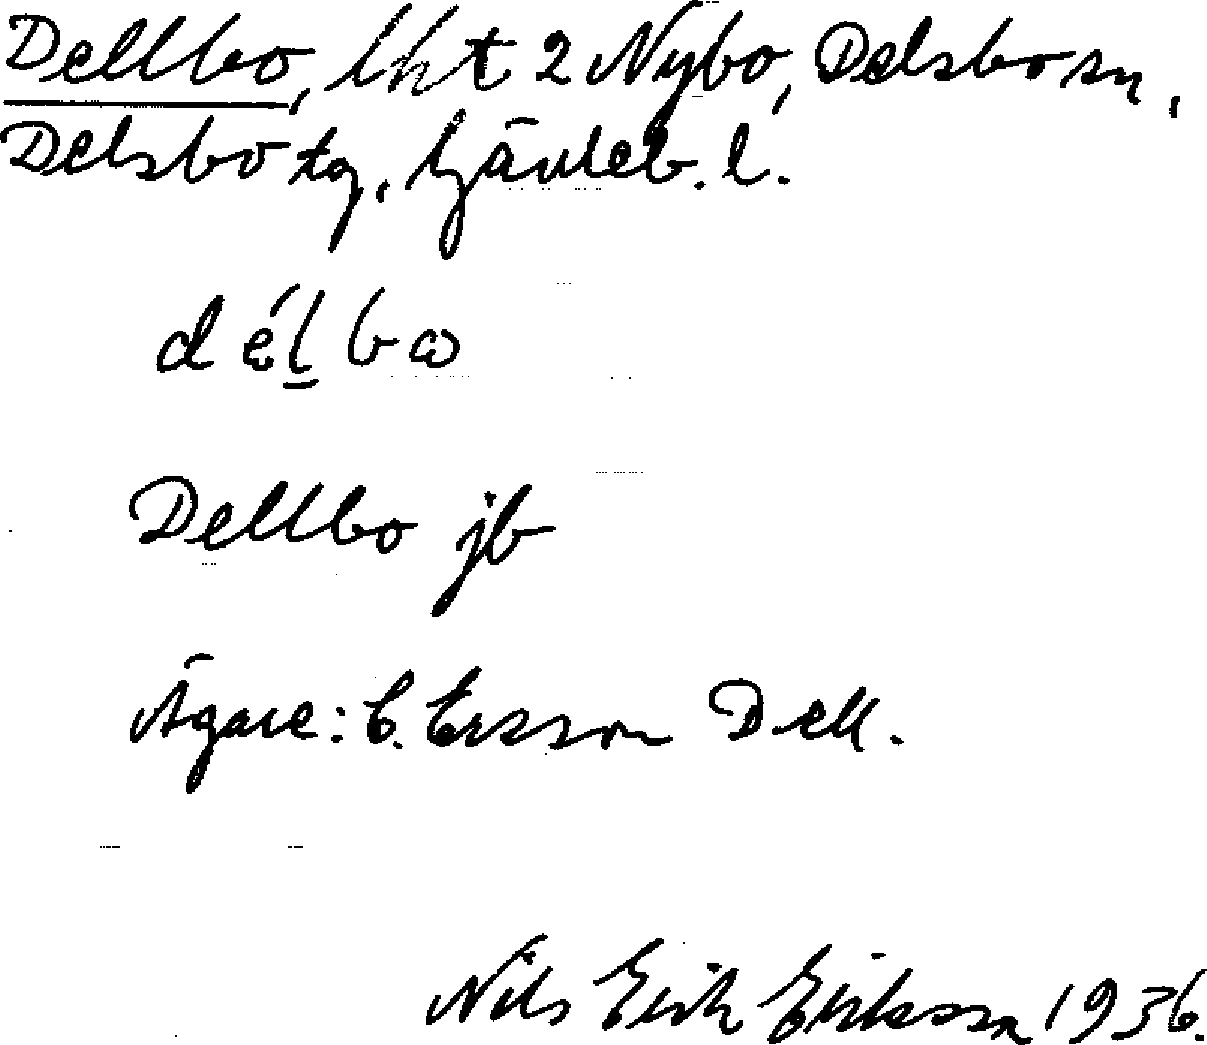 Dellbo, lht 2 Nybo, Delsbo sn,
Delsbo tg, Gävleb. l.
dél̲bω
Dellbo jb
Ägare: E. Ersson Dell.
Nils Erik Eriksson 1936.